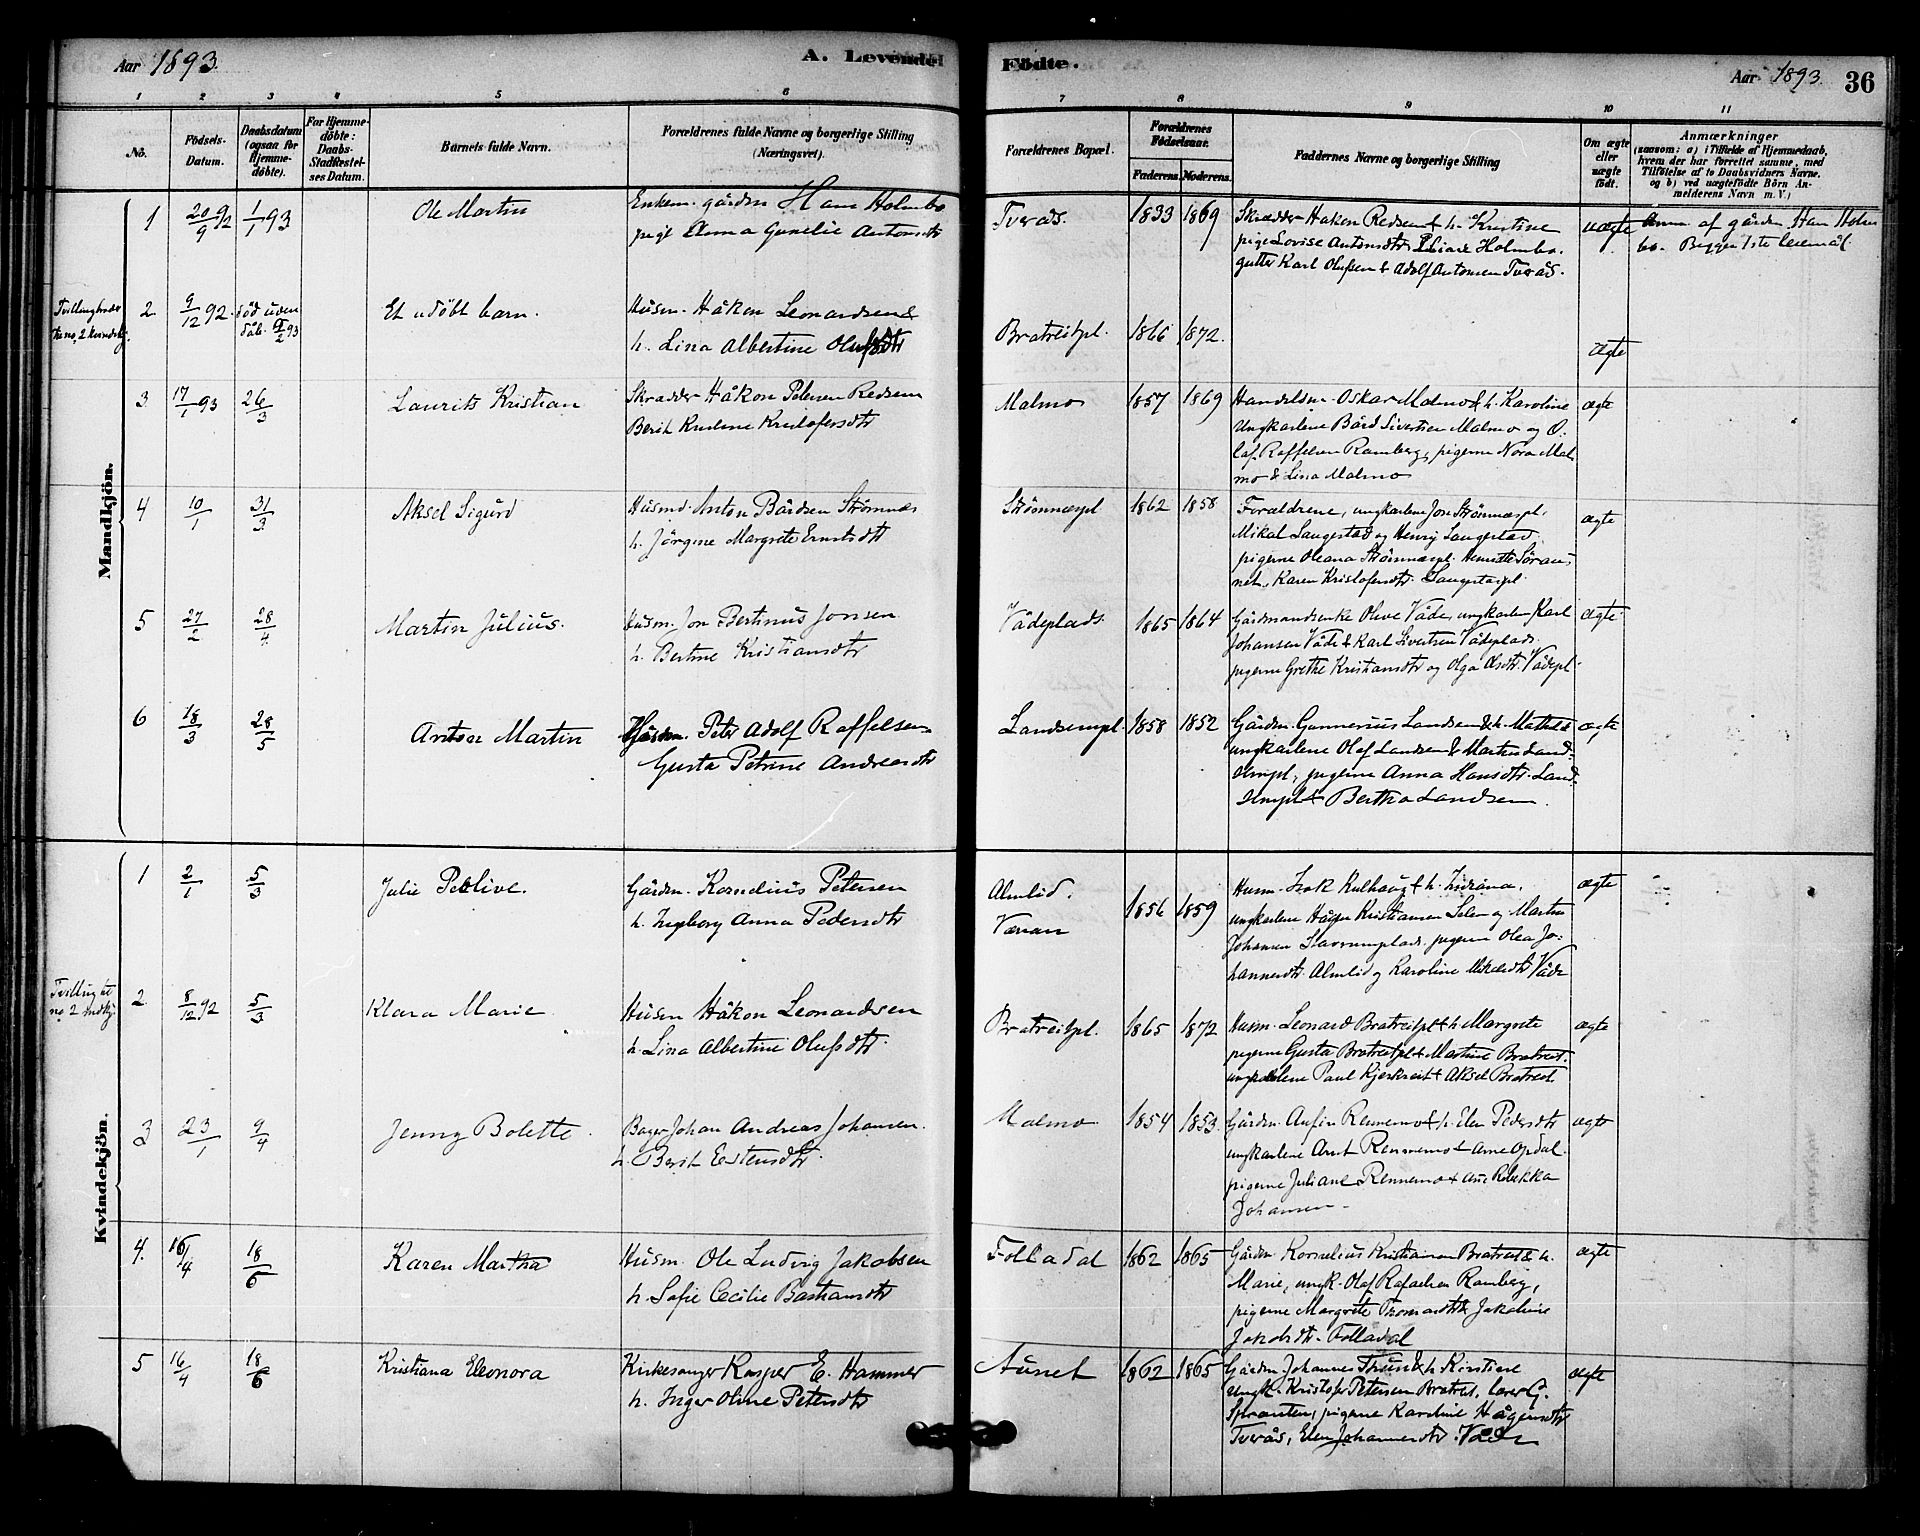 Aar 1893.
A. Levendel Födte.
Aar 1893. 36
1 2 3 4 5 6 7 8 9 10 11
No.
Födsels-Datum.
Daabsdatum (ogsaa for Hjemme-döbte).
For Hjemme-döbte: Daabs-Stadfæstel-ses Datum.
Barnets fulde Navn.
Forældrenes fulde Navne og borgerlige Stilling (Næringsvei).
Forældrenes Bopæl.
Forældrenes Födselsaar.
Faderens. Moderens.
Faddernes Navne og borgerlige Stilling
Om ægte eller uægte födt.
Anmærkninger
(saasom: a) i Tilfælde af Hjemmedaab, hvem der har forrettet samme, med Tilföielse af to Daabsvidners Navne. og b) ved uægtefödte Börn An-melderens Navn m. V.)
Mandkjön.
1 20/9 92 1/1 93 Ole Martin
Enkem. gårdm Hans Holmbo
pige Anna Gurelie Antonsdtr
Tverås 1833 1869
Skrædder Håkon Redsem & h. Kristine
pige Lovise Antonsdtr Holmbo.
gutter Karl Olufsen & Adolf Antonsen Tverås.
uægte
af gården Hans Holm
bo. Begges 1ste leiemål.
2 9/12 92. död uden dåb 9/2 93
Et udöbt barn.
Husm. Håkon Leonardsen &
h. Lina Albertine Olufsdtr
Bratreitpl. 1866 1872.
ægte
3 17/1 93 26/3 Laurits Kristian
Skrædder Håkon Petersen Redsem
Berit Kristofersdtr
Malmo 1857 1869
Handelsm. Oskar Malmo & h. Karoline
Ungkarlene Bård Sivertsen Malmo og O-
laf Raffelsen Ramberg, pigerne Nora Mal
mo & Lina Malmo
ægte
4 10/1 31/3 Aksel Sigurd
Husmd. Anton Bårdsen Strömnes
h. Jörgine Margrete Ernstsdtr
Strömnespl 1862 1858
Forældrene, ungkarlene Jon Strömnespl.
Mikal Langestad og Henrij Langstad
pigerne Oleana Strömnespl.
Karen Kristofersdtr.
ægte
5 27/2 28/4 Martin Julius.
Husm. Jon Bertinus Jonsen
h. Bertine Kristiansdtr
Vådeplads. 1865 1864
Gårdmandsenke Olive Våde, ungkarlen Karl
Johansen Våde & Karl Sivertsen Vådeplads.
pigerne Grethe Kristiansdtr og Olga Olsdtr. Vådepl.
ægte
6 18/3 28/5 Anton Martin
Peter Adolf Raffelsen
Gusta Petrine Andreasdtr
Landsempl. 1858 1852
Gårdm. Gunnerius Landsem & h. Mathilde
ungkarlene Olaf Landsem & Martin Land-
sempl., pigerne Anna Hansdtr. Land-
sempl & Bertha Landsem.
ægte
Kvindekjön.
1 2/1 5/3 Julie Petlive.
Gårdm. Kornelius Petersen
h. Ingeborg Anna Pedersdtr
Almlid. Værran 1856 1859
Husm. Isak Kulhaug & h.
ungkarlene Kristiansen og Martin
Johansen pigerne Olea Jo-
hannesdtr. Almlid og Karoline Våde
ægte
2 8/12 92 5/3 Klara Marie
Husm Håkon Leonardsen
h. Lina Albertine Olufsdtr.
Bratreitpl. 1865 1872
Husm. Leonard Bratreitpl & h. Margrete
pigerne Gusta Bratreitpl & Martine Bratreit.
ungkarlene Paul Kjerkreit & Aksel Bratreit
ægte
3 23/1 9/4 Jenny Bolette.
Bager Johan Andreas Johansen.
h. Berit Estensdtr.
Malmo 1854 1853.
Gårdm. Rennemo & h. Elen Pedersdtr
ungkarlene Arnt Rennemo & Arne Opdal.
pigerne Juliane Rennemo & Ane Rebekka
Johansen -
ægte
4. 16/4 18/6 Karen Martha
Husm. Ole Ludvig Jakobsen
h. Sofie Cecilie Bastiansdtr
Folladal 1862 1865
Gårdm. Kornelius Kristiansen Bratreit & h.
Marie, ungk. Olaf Rafaelsen Ramberg,
pigerne Margrete & Jakobine
Jakobsdtr. Folladal
ægte
5 16/4 18/6 Kristiana Eleonora
Kirkesanger Kasper E. Hammer
h. Inger Oline Petersdtr
Aunet 1862 1865
Gårdm. Johannes & h. Kirstine
Ungk. Kristofer Petersen Bratreit, lærer G.
pigerne Karoline Hågensdtr
Tverås, Elen Johannesdtr. Våde
ægte